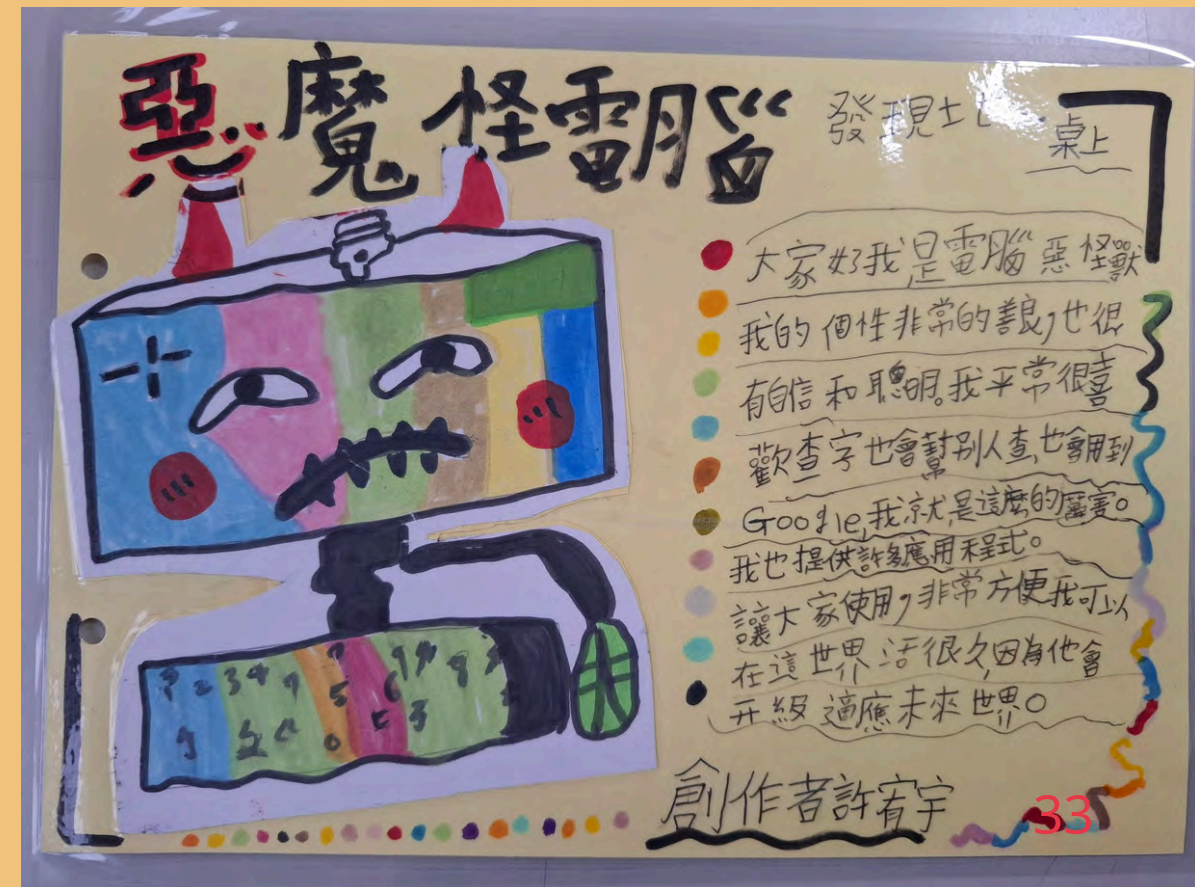 惡魔怪電腦
發現土也
桌上
大家好我是電腦惡怪獸
我的個性非常的善良,也很
有自信和聰明。我平常很喜
歡查字也會幫別人查,也會用到
Google,我就是這麼的厲害。
我也提供許多應用程式。
讓大家使用,非常方便我可以
在這世界活很久,因為他會
升級適應未來世界。
創作者許宥宇
33